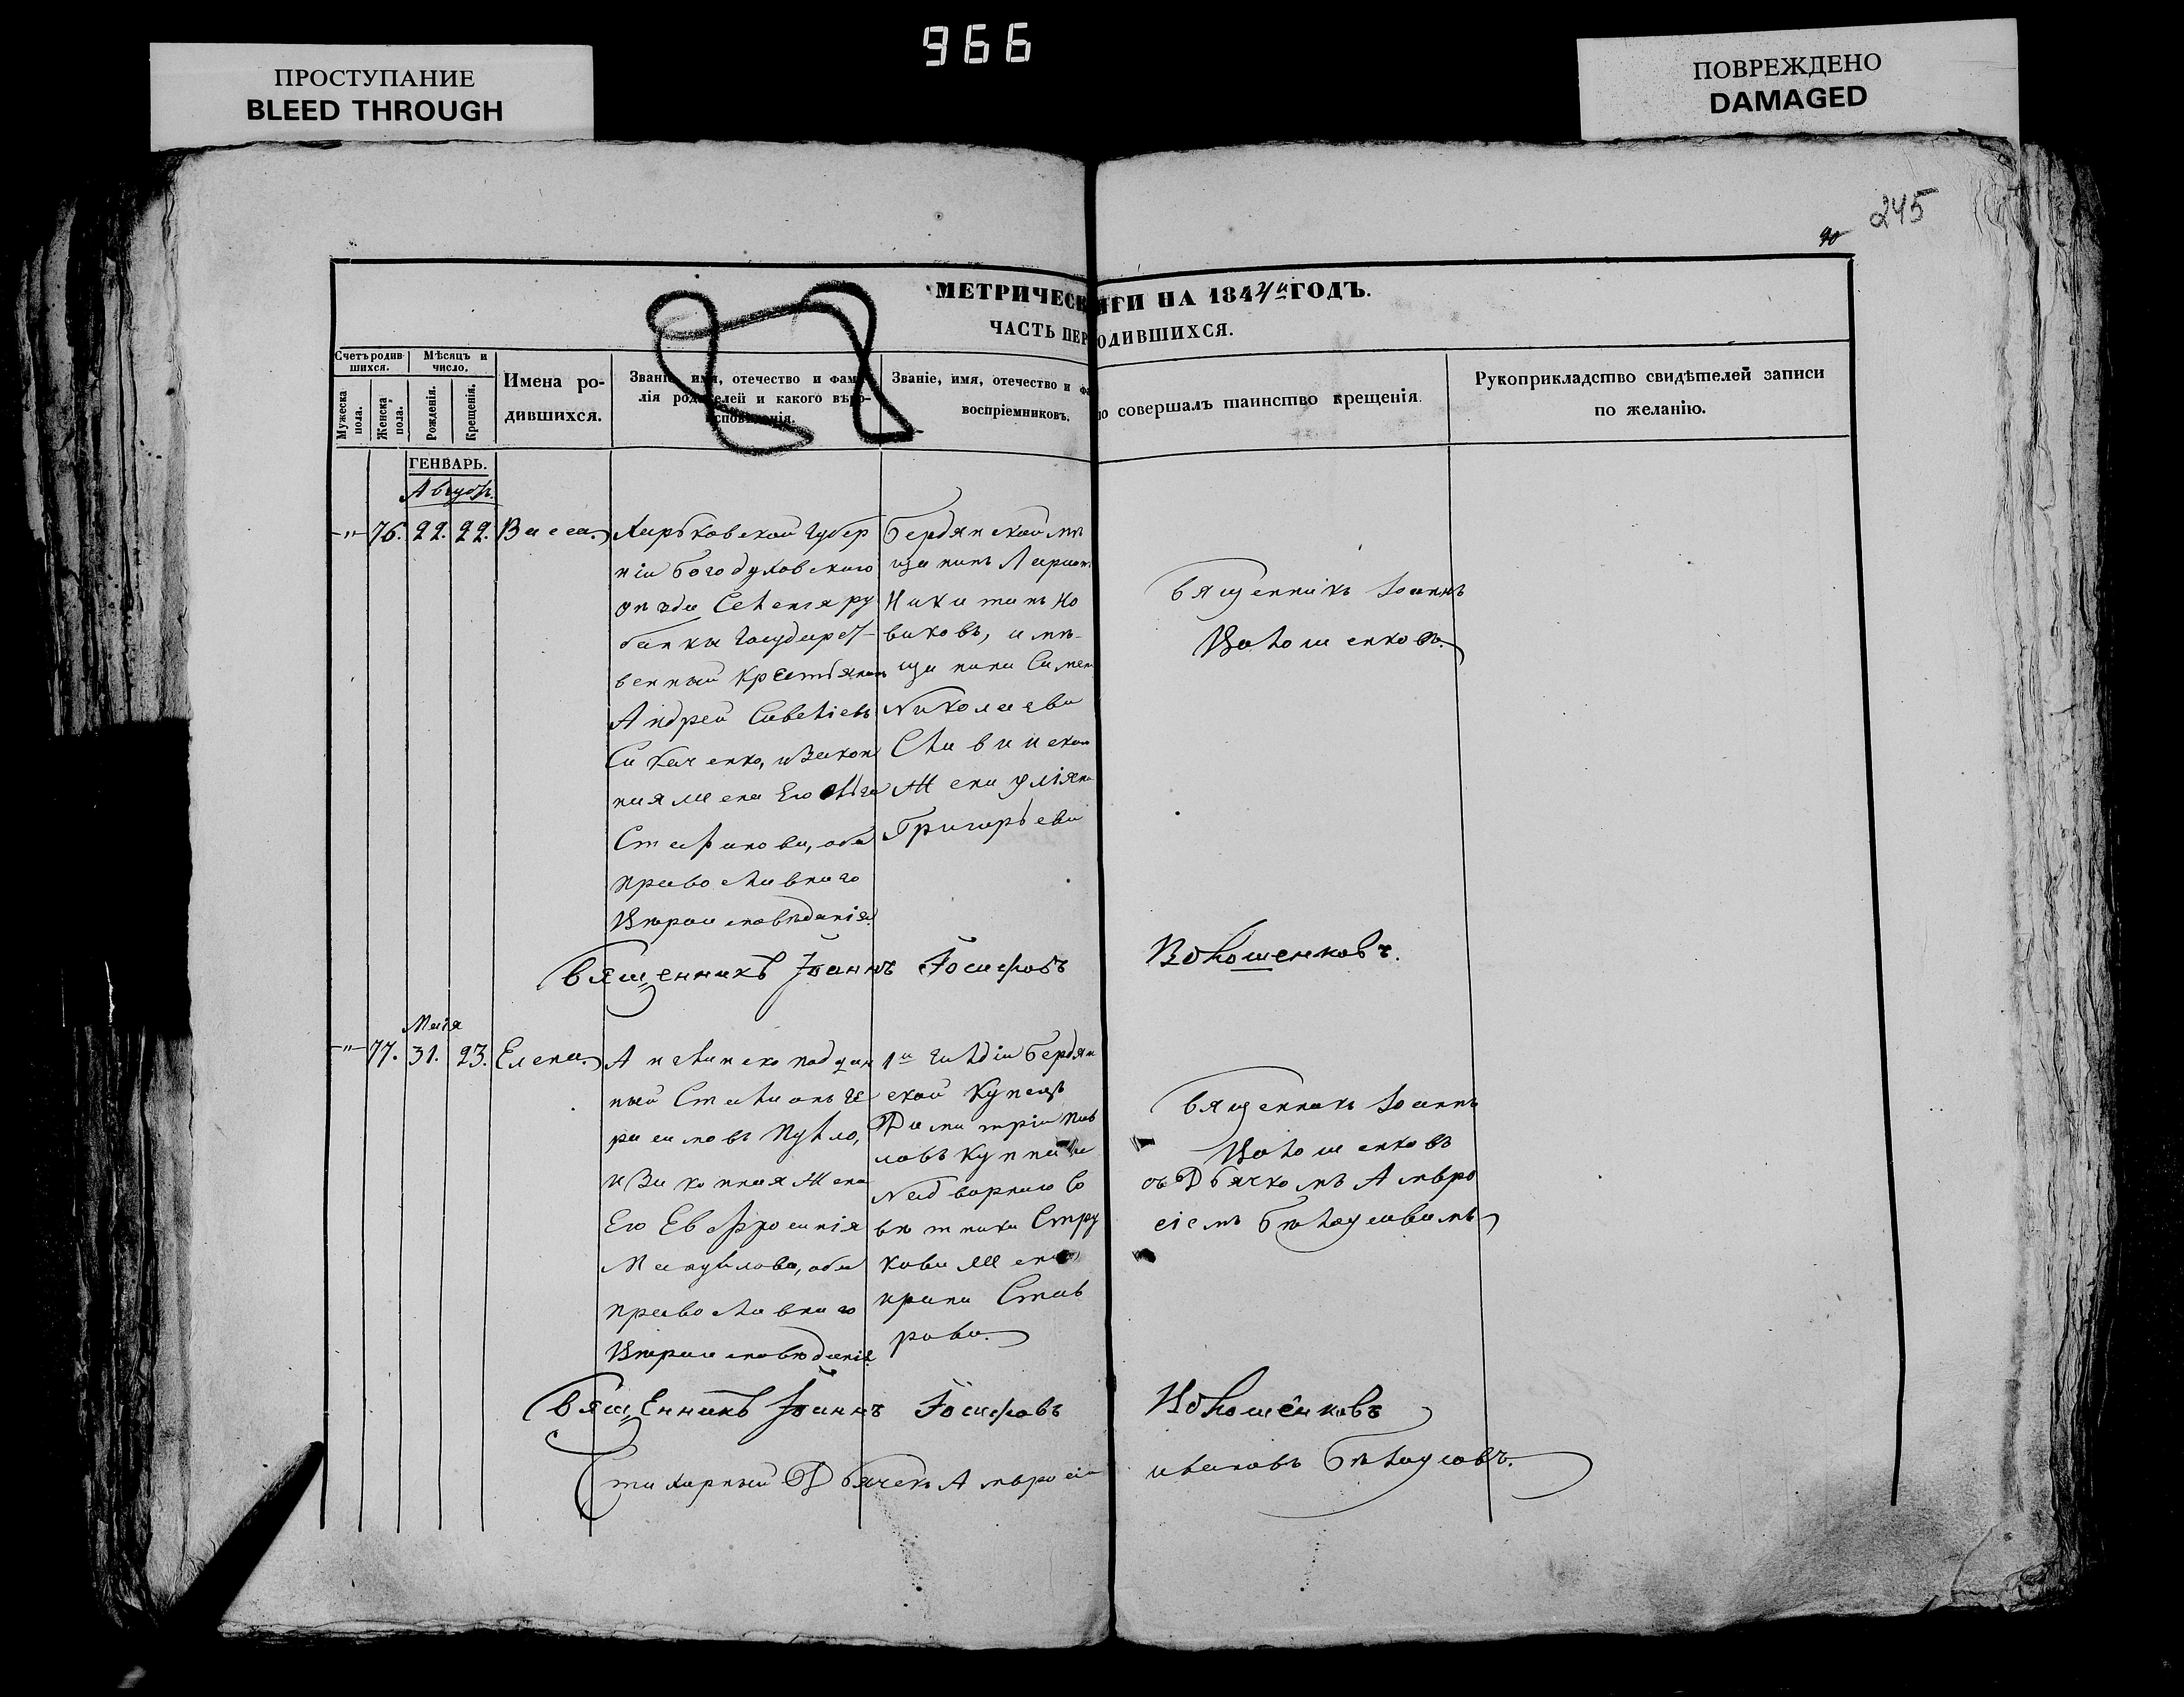 966
ПРОСТУПАНИЕ
BLEED THROUGH
ПОВРЕЖДЕНО
DAMAGED
245
90
МЕТРИЧЕСК ИГИ НА 1844й ГОДЪ.
ЧАСТЬ ПЕР ОДИВШИХСЯ.
Счетъ родив-
шихся.
Мужеска пола.
Женска пола.
Мѣсяцъ и
число.
Рожденія.
Крещенія.
Имена ро-
дившихся.
Званіе, имя, отечество и фами-
лія родителей и какого вѣро-
исповѣданія.
Званіе, имя, отечество и фа
воспріемниковъ.
то совершалъ таинство крещенія.
Рукоприкладство свидѣтелей записи
по желанію.
ГЕНВАРЬ.
Августъ.
-"- 76. 22. 22. Васса.
Харьковской Губер
ніи Богодуховского
уѣзда Села
Государст
венный Крестьянинъ
Андрей Савеліевъ
закон
ная жена Его
Стефанова, оба
православнаго
Вѣроисповѣданія.
Бердянской мѣ
щанинъ Ларіон
Никитинъ Но
виковъ, и мѣ-
щанина Симен
Николаева
Славинскаго
Жена Уліяна
Григорьева
Священникъ Іоаннъ
Волошенковъ.
Священникъ Іоаннъ Іосифовъ Волошенковъ.
Маія
-"- 77. 31. 23. Елена.
Англинско поддан
ный Стаматъ Ге
расимовъ
и Законная Жена
Его Евфросинія
Мануилова, оба
православнаго
Вѣроисповѣданія.
1й Гильдіи Бердян
ской Купецъ
Димитрій Пав
ловъ
Надворнаго Со
вѣтника Стру
кова Жена
Ирина Став
рова.
Священникъ Іоаннъ
Волошенковъ
съ Дьячкомъ Амвро
сіемъ Бѣлоусовымъ
Священникъ Іоаннъ Іосифовъ Волошенковъ
Стихарный Дьячекъ Амвросій Ивановъ Бѣлоусовъ.